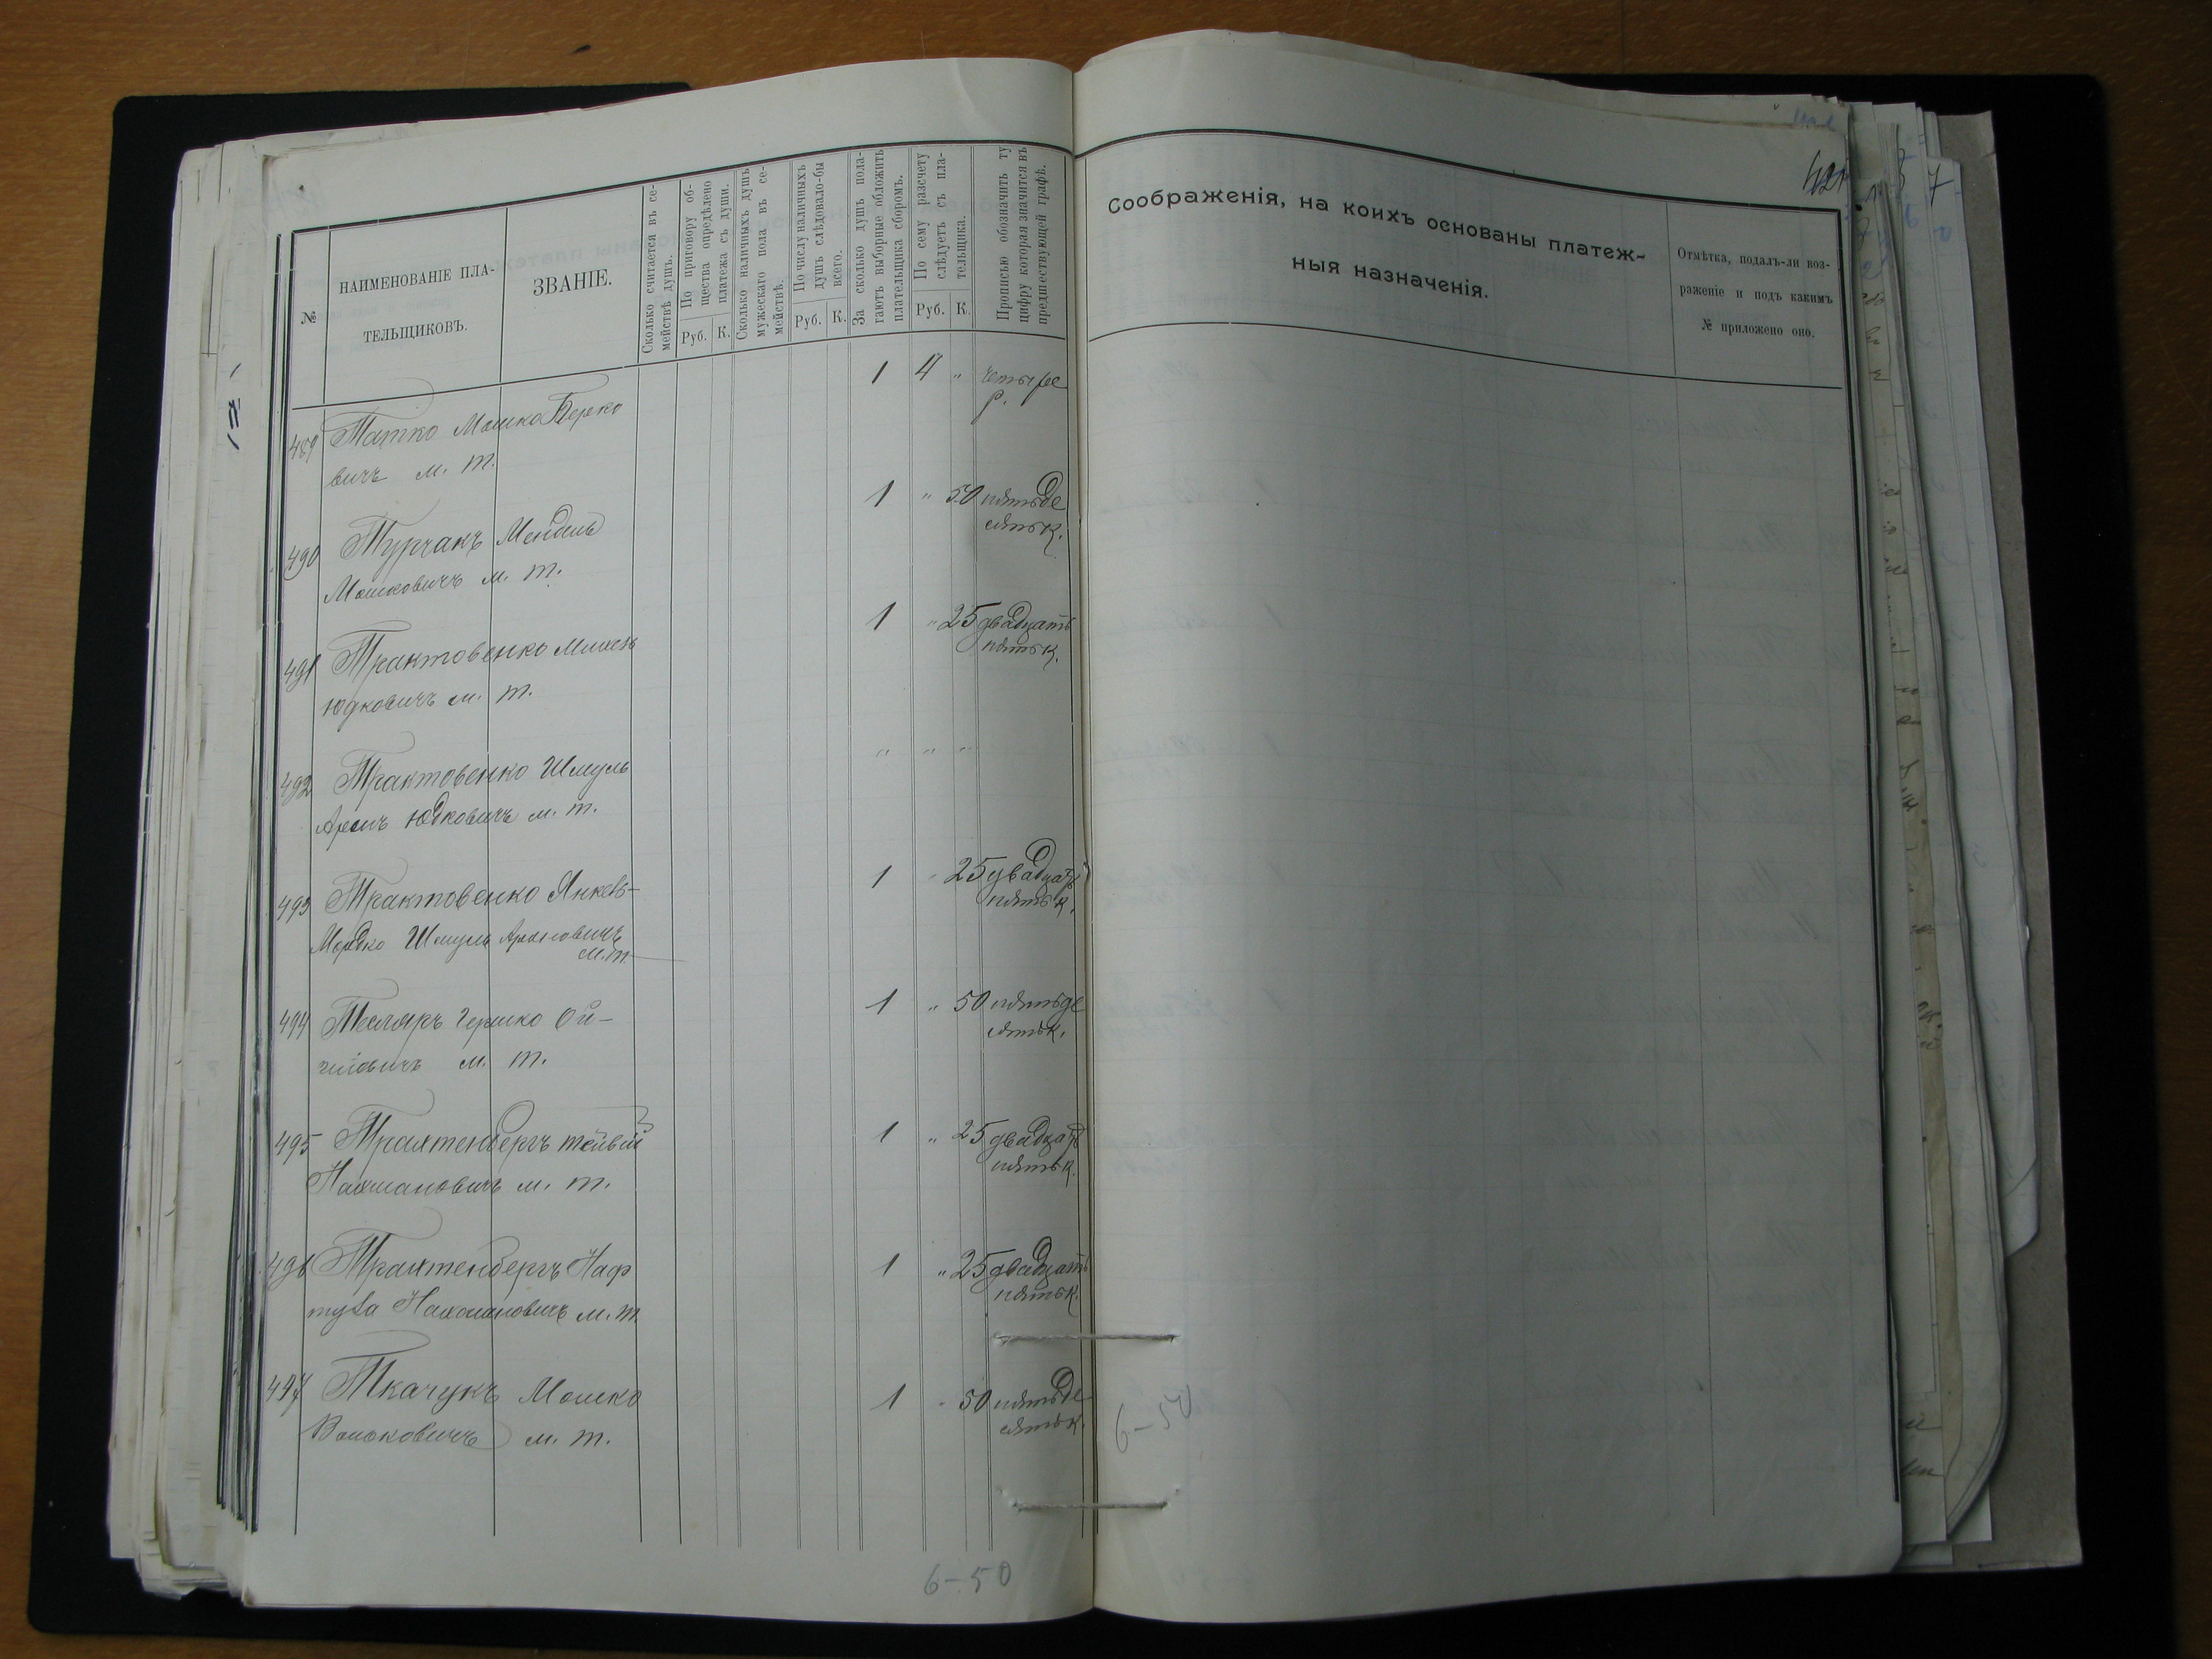 №
НАИМЕНОВАНІЕ ПЛА-
ТЕЛЬЩИКОВЪ.
ЗВАНІЕ.
Сколько считается въ се-
мействѣ душъ.
По приговору об-
щества опредѣлено
платежа съ души.
Руб. К.
Сколько наличныхъ душъ
мужескаго пола въ се-
мействѣ.
По числу наличныхъ
душъ слѣдовало-бы
всего.
Руб. К.
За сколько душъ пола-
гаютъ выборные обложить
плательщика сборомъ.
По сему разсчету
слѣдуетъ съ пла-
тельщика.
Руб. К.
Прописью обозначить ту
цифру которая значится въ
предшествующей графѣ.
489 Татко Мошко Берко 1 4 " четыре
вичъ м. т. р.
490 Турчакъ Мендель 1 " 50 пятьде
Мошковичъ м. т. сятъ к.
491 Трактовенко Михель 1 " 25 двадцать
Юдковичъ м. т. пять к.
492 Трактовенко Шмуль " " "
Аронъ Юдковичъ м. т.
493 Трактовенко Янкель- 1 " 25 двадцать
Мордко Шмуль Ароновичъ пять к.
м. т.
494 Гершко Ой- 1 " 50 пятьде
м. т. сятъ к.
495 Трахтенбергъ 1 " 25 двадцать
Нахмановичъ м. т. пять к.
496 Трахтенбергъ Наф 1 " 25 двадцать
тула Нахмановичъ м. т. пять к.
497 Ткачукъ Мошко 1 " 50 пятьде
Вольковичъ м. т. сятъ к.
6-50
421
Соображенія, на коихъ основаны платеж-
ныя назначенія.
Отмѣтка, подалъ-ли воз-
раженіе и подъ какимъ
№ приложено оно.
6-50